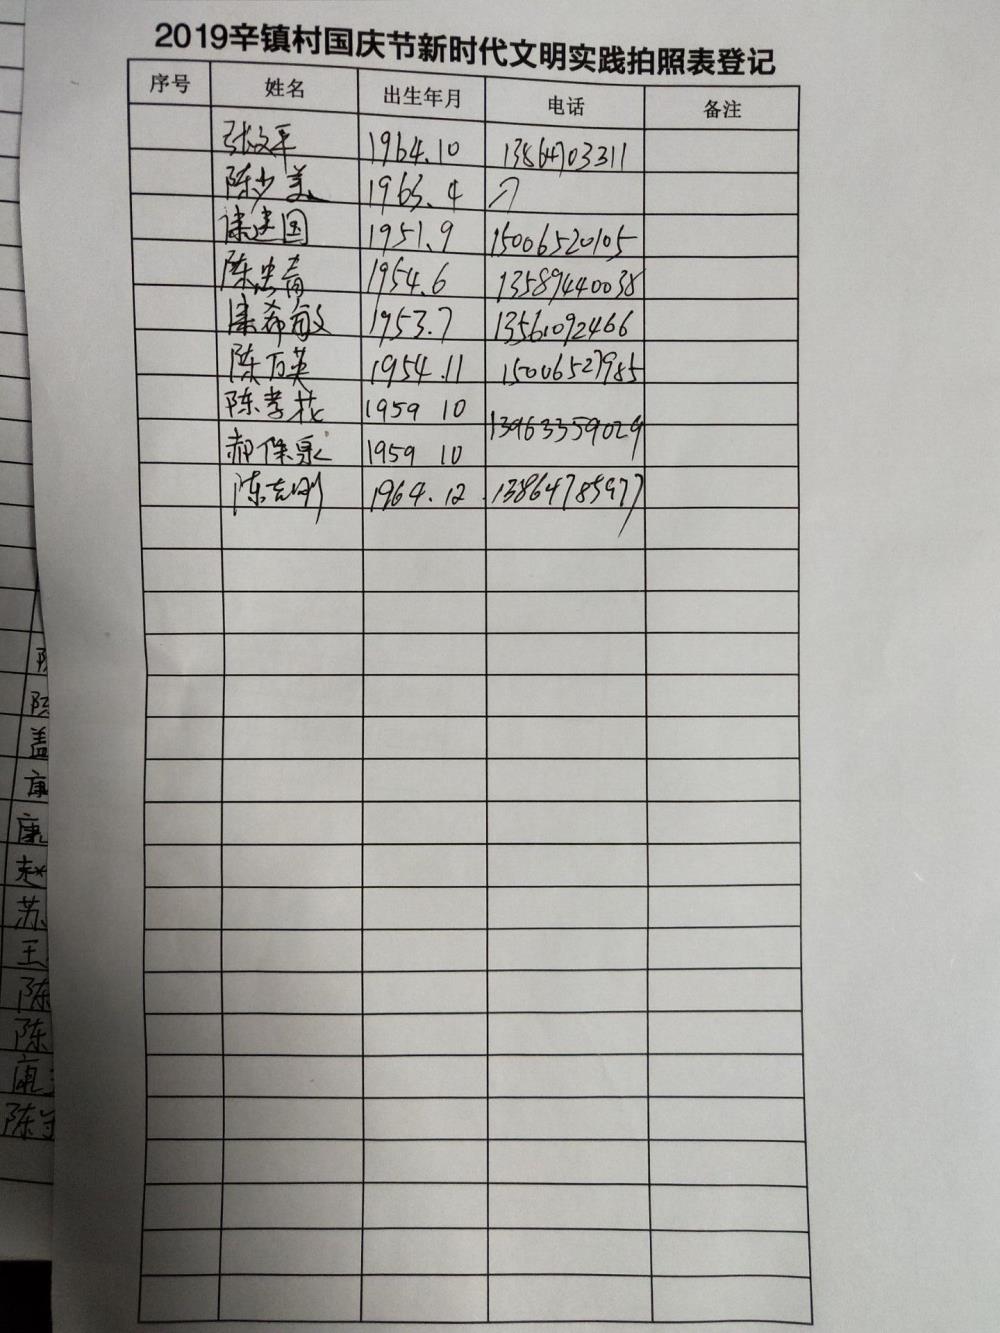 2019辛镇村国庆节新时代文明实践拍照表登记
序号 姓名 出生年月 电话 备注
张文平 1964.10 13864703311
陈少美 1963.4
康建国 1951.9 15006520105
陈忠青 1954.6 13589440038
康希敏 1953.7 13561092466
陈万英 1954.11 15006527985
陈孝花 1959 10 13963359029
郝保泉 1959 10
陈志刚 1964.12 13864785977
陈
盖
康
康
赵
苏
王
陈
陈
康
陈